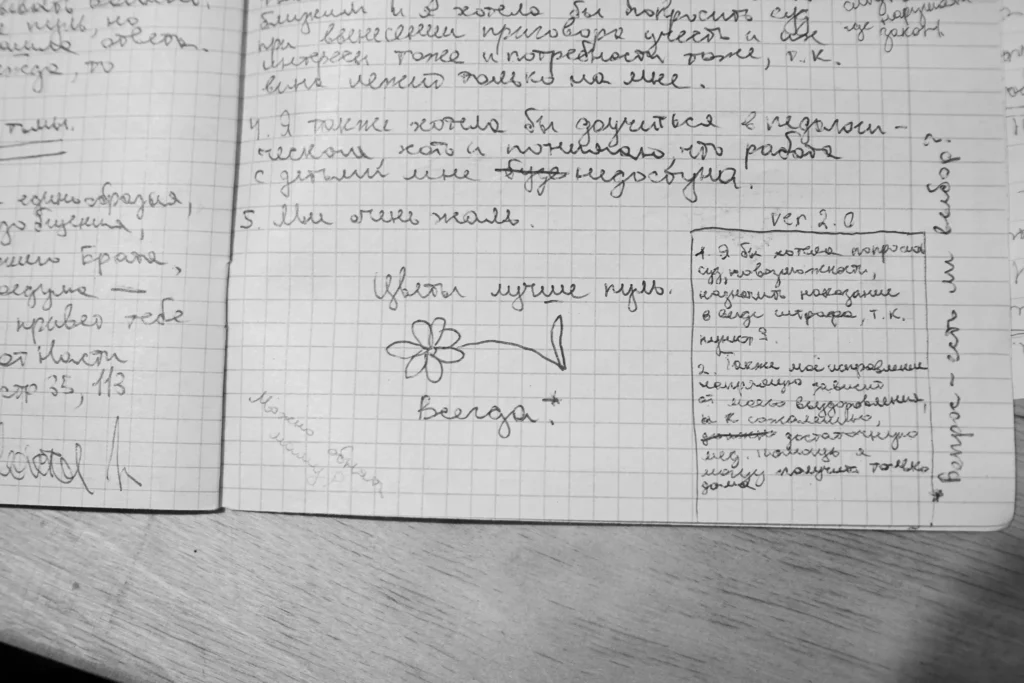 е пуль, но
ответа.
тьмы.
единообразия,
Брата,
привет тебе
от Насти
стр 35, 113
близким и я хотела бы попросить суд
при вынесении приговора учесть и их
интересы тоже и потребности тоже, т.к.
вина лежит только на мне.
4. Я также хотела бы доучиться в педагоги-
ческом, хоть и понимаю, что работа
с детьми мне буде недоступна.
5. Мне очень жаль.
Цветы лучше пуль.
Всегда!*
Можно
обнять
ver 2.0
1. Я бы хотела попросить
суд, по возможности,
назначить наказание
в виде штрафа, т.к.
пункт 3.
2. Также моё исправление
напрямую зависит
от моего выздоровления,
а к сожалению,
достаточную
мед. помощь я
могу получить только
дома
* Вопрос – есть ли выбор?